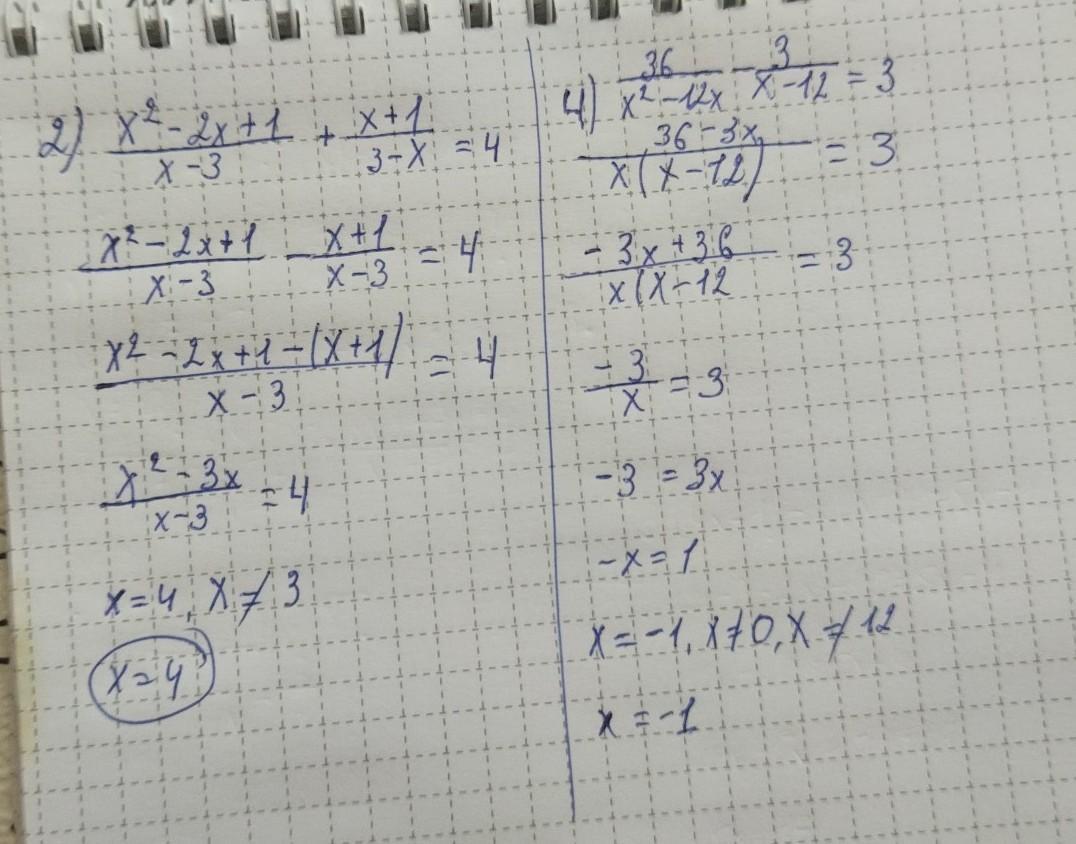 2) (x² - 2x + 1)/(x - 3) + (x + 1)/(3 - x) = 4
(x² - 2x + 1)/(x - 3) - (x + 1)/(x - 3) = 4
(x² - 2x + 1 - (x + 1))/(x - 3) = 4
(x² - 3x)/(x - 3) = 4
x = 4, x ≠ 3
x = 4
4) 36/(x² - 12x) - 3/(x - 12) = 3
(36 - 3x)/(x(x - 12)) = 3
(-3x + 36)/(x(x - 12) = 3
-3/x = 3
-3 = 3x
-x = 1
x = -1, x ≠ 0, x ≠ 12
x = -1